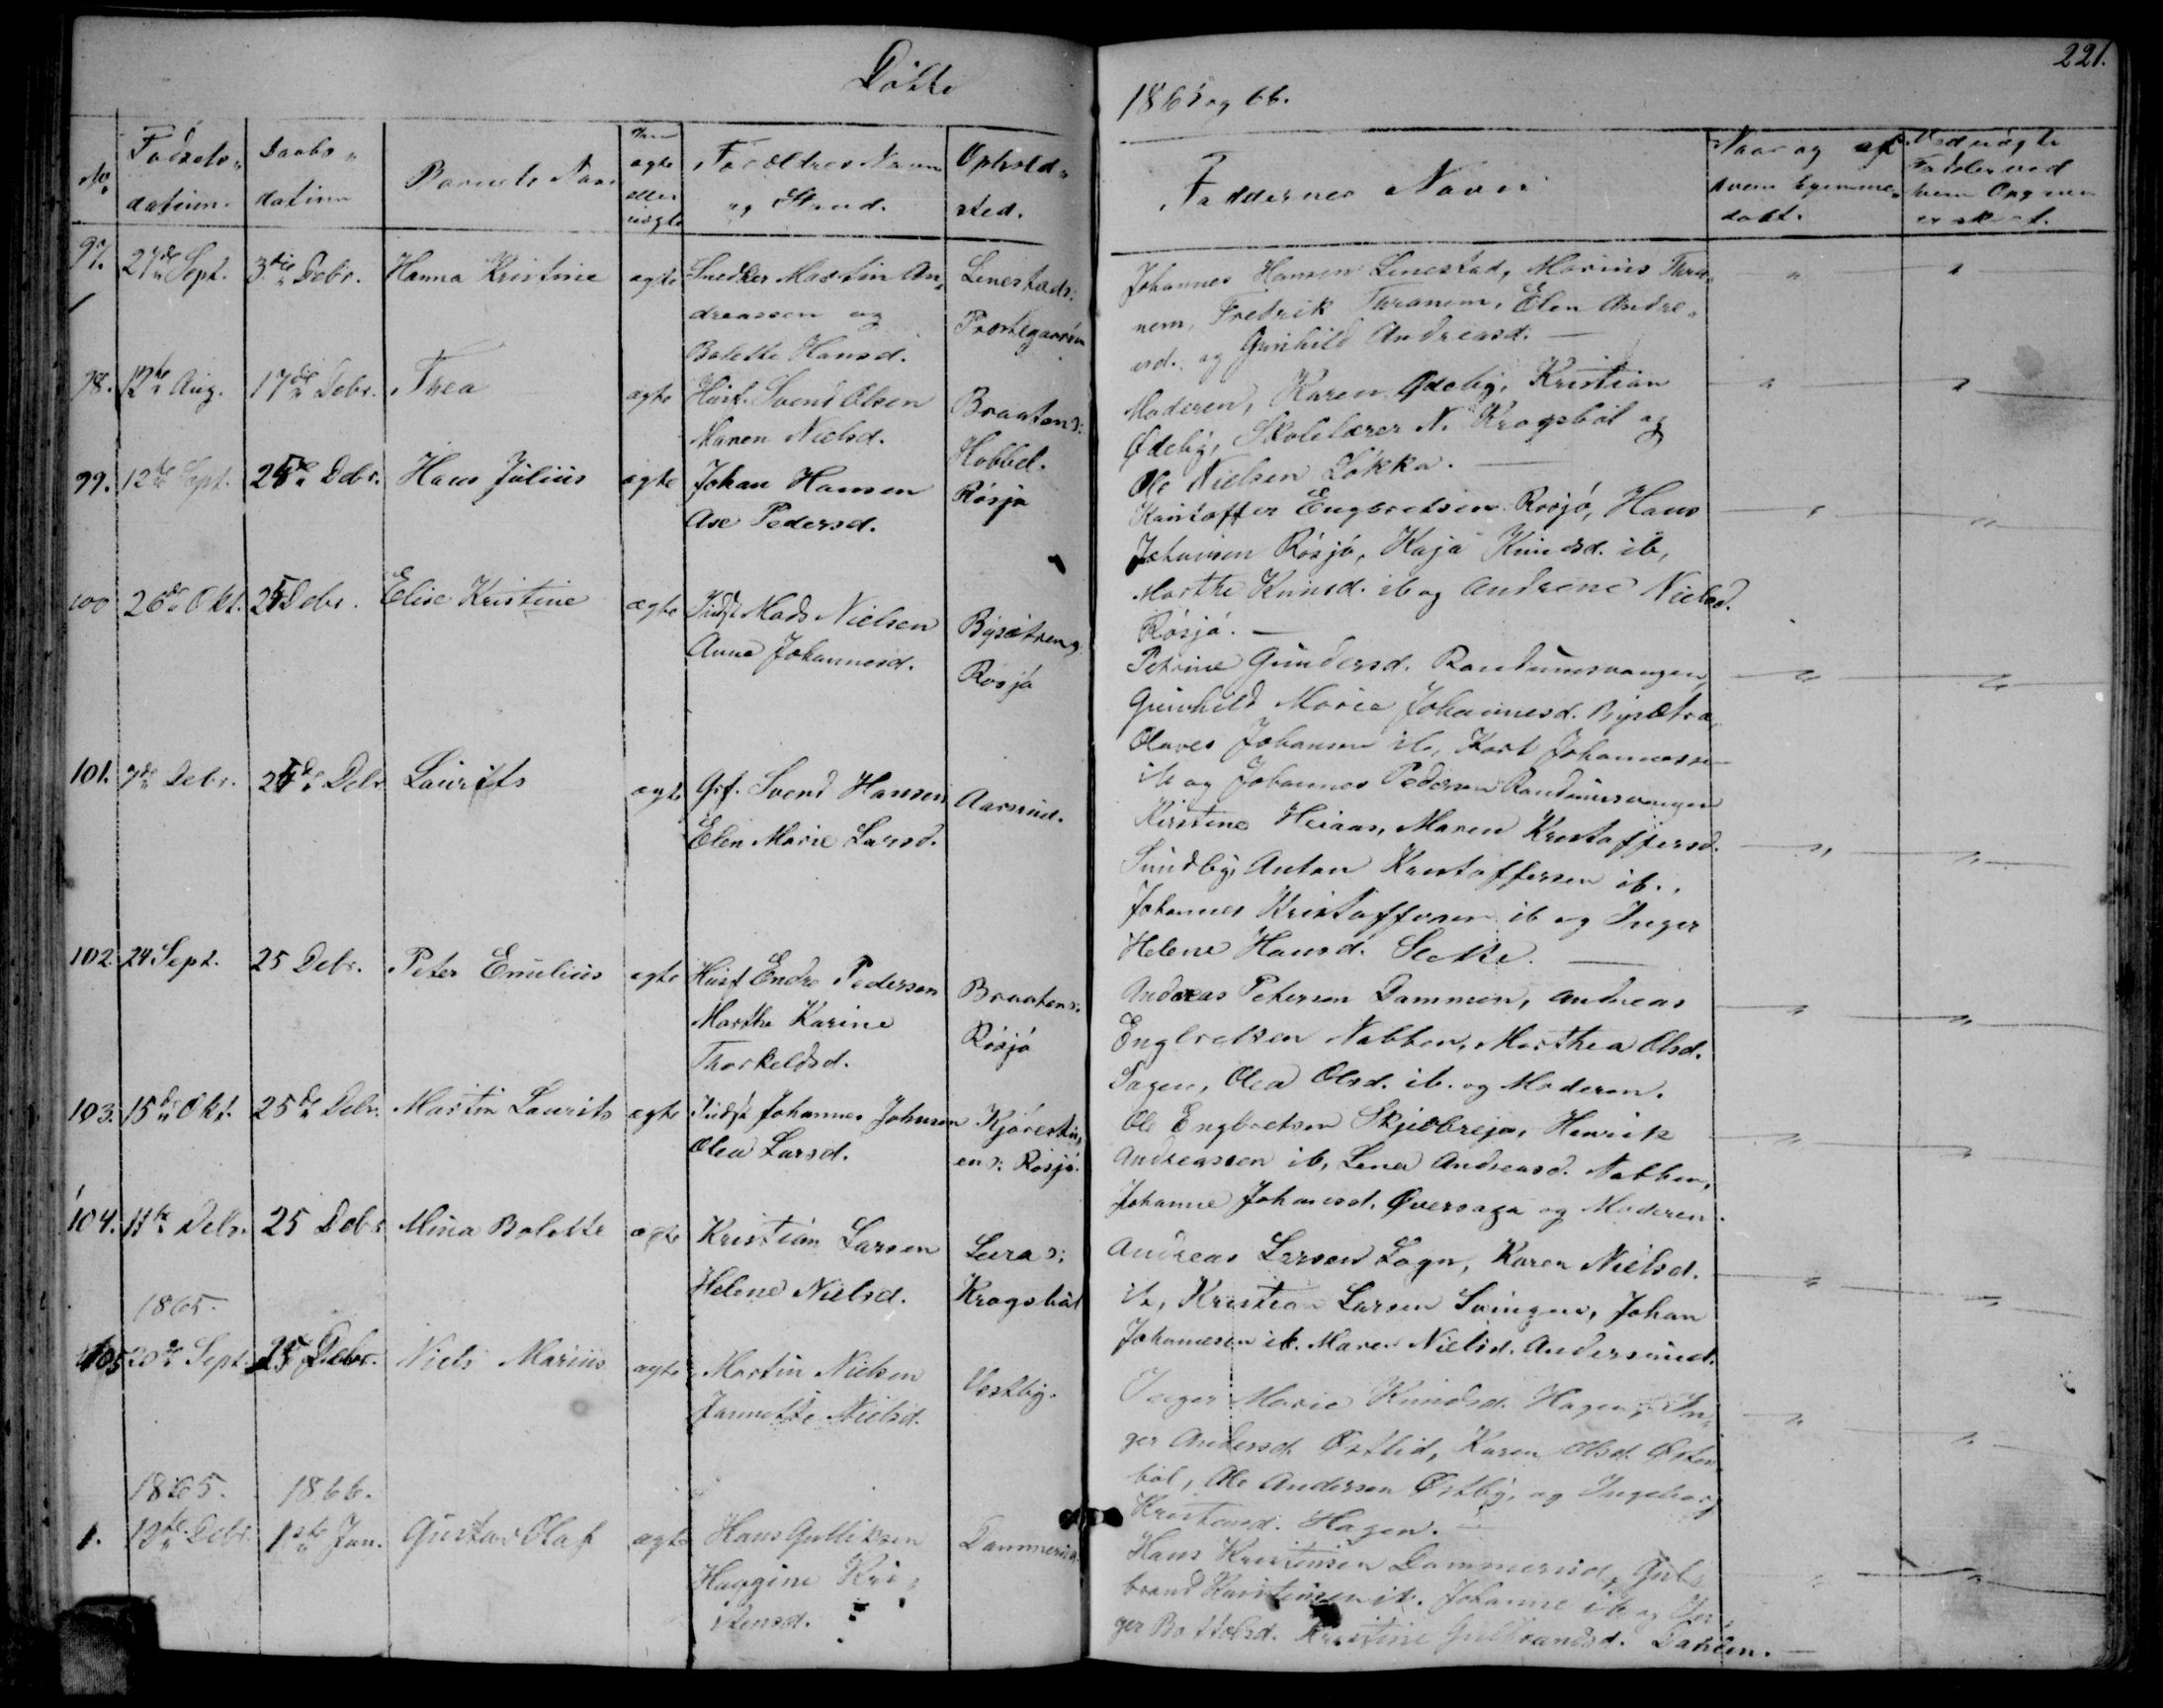 Døbte
1865 og 66.
221.
No.
Fødsels-
datum.
Daabs-
datum
Barnets Navn
agte
eller
uagte
Forældres Navn
og Stand.
Ophold-
sted.
Faddernes Navn
Naar og af
hvem hjemme-
døbt.
97. 27de Sept. 3die Debr. Hanna Kristine agte Snedker Martin An-
dreassen og
Bolette Hansd.
Lenestad s:
Præstegaarden
Johannes Hansen Lenestad, Marius Thra-
nem, Fredrik Thranem, Elen Andre-
asd. og Gunhild Andreasd. —
98. 12te Aug. 17de Debr. Thea agte Husf. Svend Olsen
Maren Nielsd.
Braaten s:
Hobbel.
Moderen, Karen Ødeby, Kristian
Ødeby, Skolelærer N. Krogsbøl og
Ole Nielsen Løkka. —
99. 12te Sept. 25de Debr. Hans Julius agte Johan Hansen
Ase Pedersd.
Røsjø
Kristoffer Engbretsen Røsjø, Hans
Johansen Røsjø, Kaja Knudsd. ib,
Marthe Knudsd. ib og Andrene Nielsd.
Røsjø. —
100 26de Okt. 25 Debr. Elise Kristine agte Indst Mads Nielsen
Anne Johannesd.
Bysætren s:
Røsjø
Petrine Gundersd. Randumsvangen,
Gunhild Marie Johannesd. Bysætra
Olaves Johansen ib, Karl Johannessen
ib og Johannes Pedersen Randumsvangen
101. 7de Debr. 25de Debr Laurits agte Grf. Svend Hansen
Elen Marie Larsd.
Aarnud.
Kirstine Heiaas, Maren Kristoffersd.
Sundby, Anton Kristoffersen ib.,
Johannes Kristoffersen ib og Inger
Helene Hansd. —
102 24 Sept. 25 Debr. Peter Emilius agte Husf Endre Pedersen
Marthe Karine
Thorkeldsd.
Braaten s:
Røsjø
Andreas Petersen Dammen, Andreas
Engbretsen Nabben, Marthea Olsd.
Sagen, Olea Olsd. ib. og Moderen.
103. 15de Okt. 25de Debr. Martin Laurits agte Indst Johannes Johnsen
Olea Larsd.
Kjørestu-
en s: Røsjø.
Ole Engbretsen Skjolbreja, Henrik
Andreassen ib, Lena Andreasd. Nabben,
Johanne Johansd. Øversaga og Moderen.
104. 11te Debr. 25 Debr Mina Bolette agte Kristian Larsen
Helene Nielsd.
Lera s:
Krogsbøl
Andreas Larsen Sogn, Karen Nielsd.
ib, Kristian Larsen Svingen, Johan
Johannesen ib. Maren Nielsd. Andersrud.
1865.
105 20de Sept. 25 Debr. Niels Marius agte Martin Nielsen
Jannette Nielsd.
Vestby.
Inger Marie Knudsd. Hagen, In-
ger Andersd. Østlid, Karen Olsd. Østen
bøl, Ole Andersen Østby, og Ingeborg
Hagen. —
1865. 1866.
1. 19te Debr. 1ste Jan. Gustav Olaf agte Hans Gulliksen
Haagine Kri-
stensd.
Dammerud.
Hans Kristensen Dammerud, Gul-
brand Kristensen ib. Johanne ib og In-
ger Bottolsd. Kristine Gulbrandsd. Dahlen. —